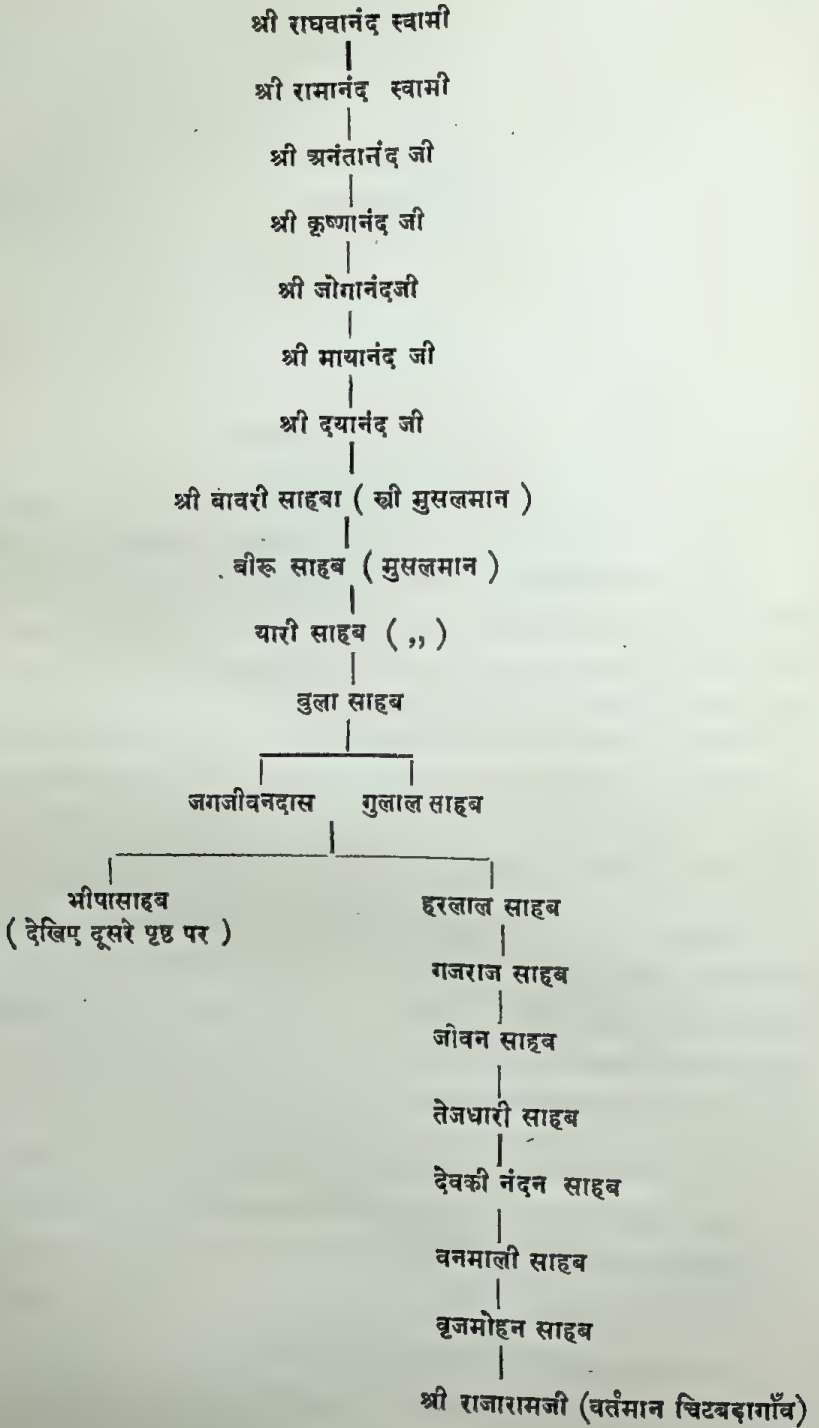 श्री राघवानंद स्वामी
श्री रामानंद स्वामी
श्री अनंतानंद जी
श्री कृष्णानंद जी
श्री जोगानंदजी
श्री मायानंद जी
श्री दयानंद जी
श्री बावरी साहबा ( स्त्री मुसलमान )
बीरू साहब ( मुसलमान )
यारी साहब ( ,, )
वुला साहब
जगजीवनदास गुलाल साहब
भीपासाहब हरलाल साहब
( देखिए दूसरे पृष्ठ पर )
गजराज साहब
जोवन साहब
तेजधारी साहब
देवकी नंदन साहब
वनमाली साहब
वृजमोहन साहब
श्री राजारामजी (वर्तमान चिटबड़ागाँव)